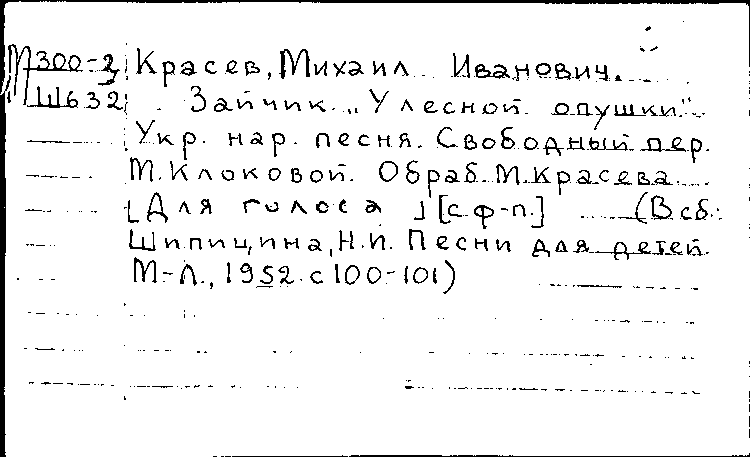 М300-2 Красев, Михаил Иванович.
Ш632 Зайчик „У лесной опушки".
Укр. нар. песня. Свободный пер.
М. Клоковой. Обраб. М. Красева.
[Для голоса] [с ф-п.] (В сб.:
Шипицина, Н.И. Песни для детей.
М.-Л., 1952. с 100-101)